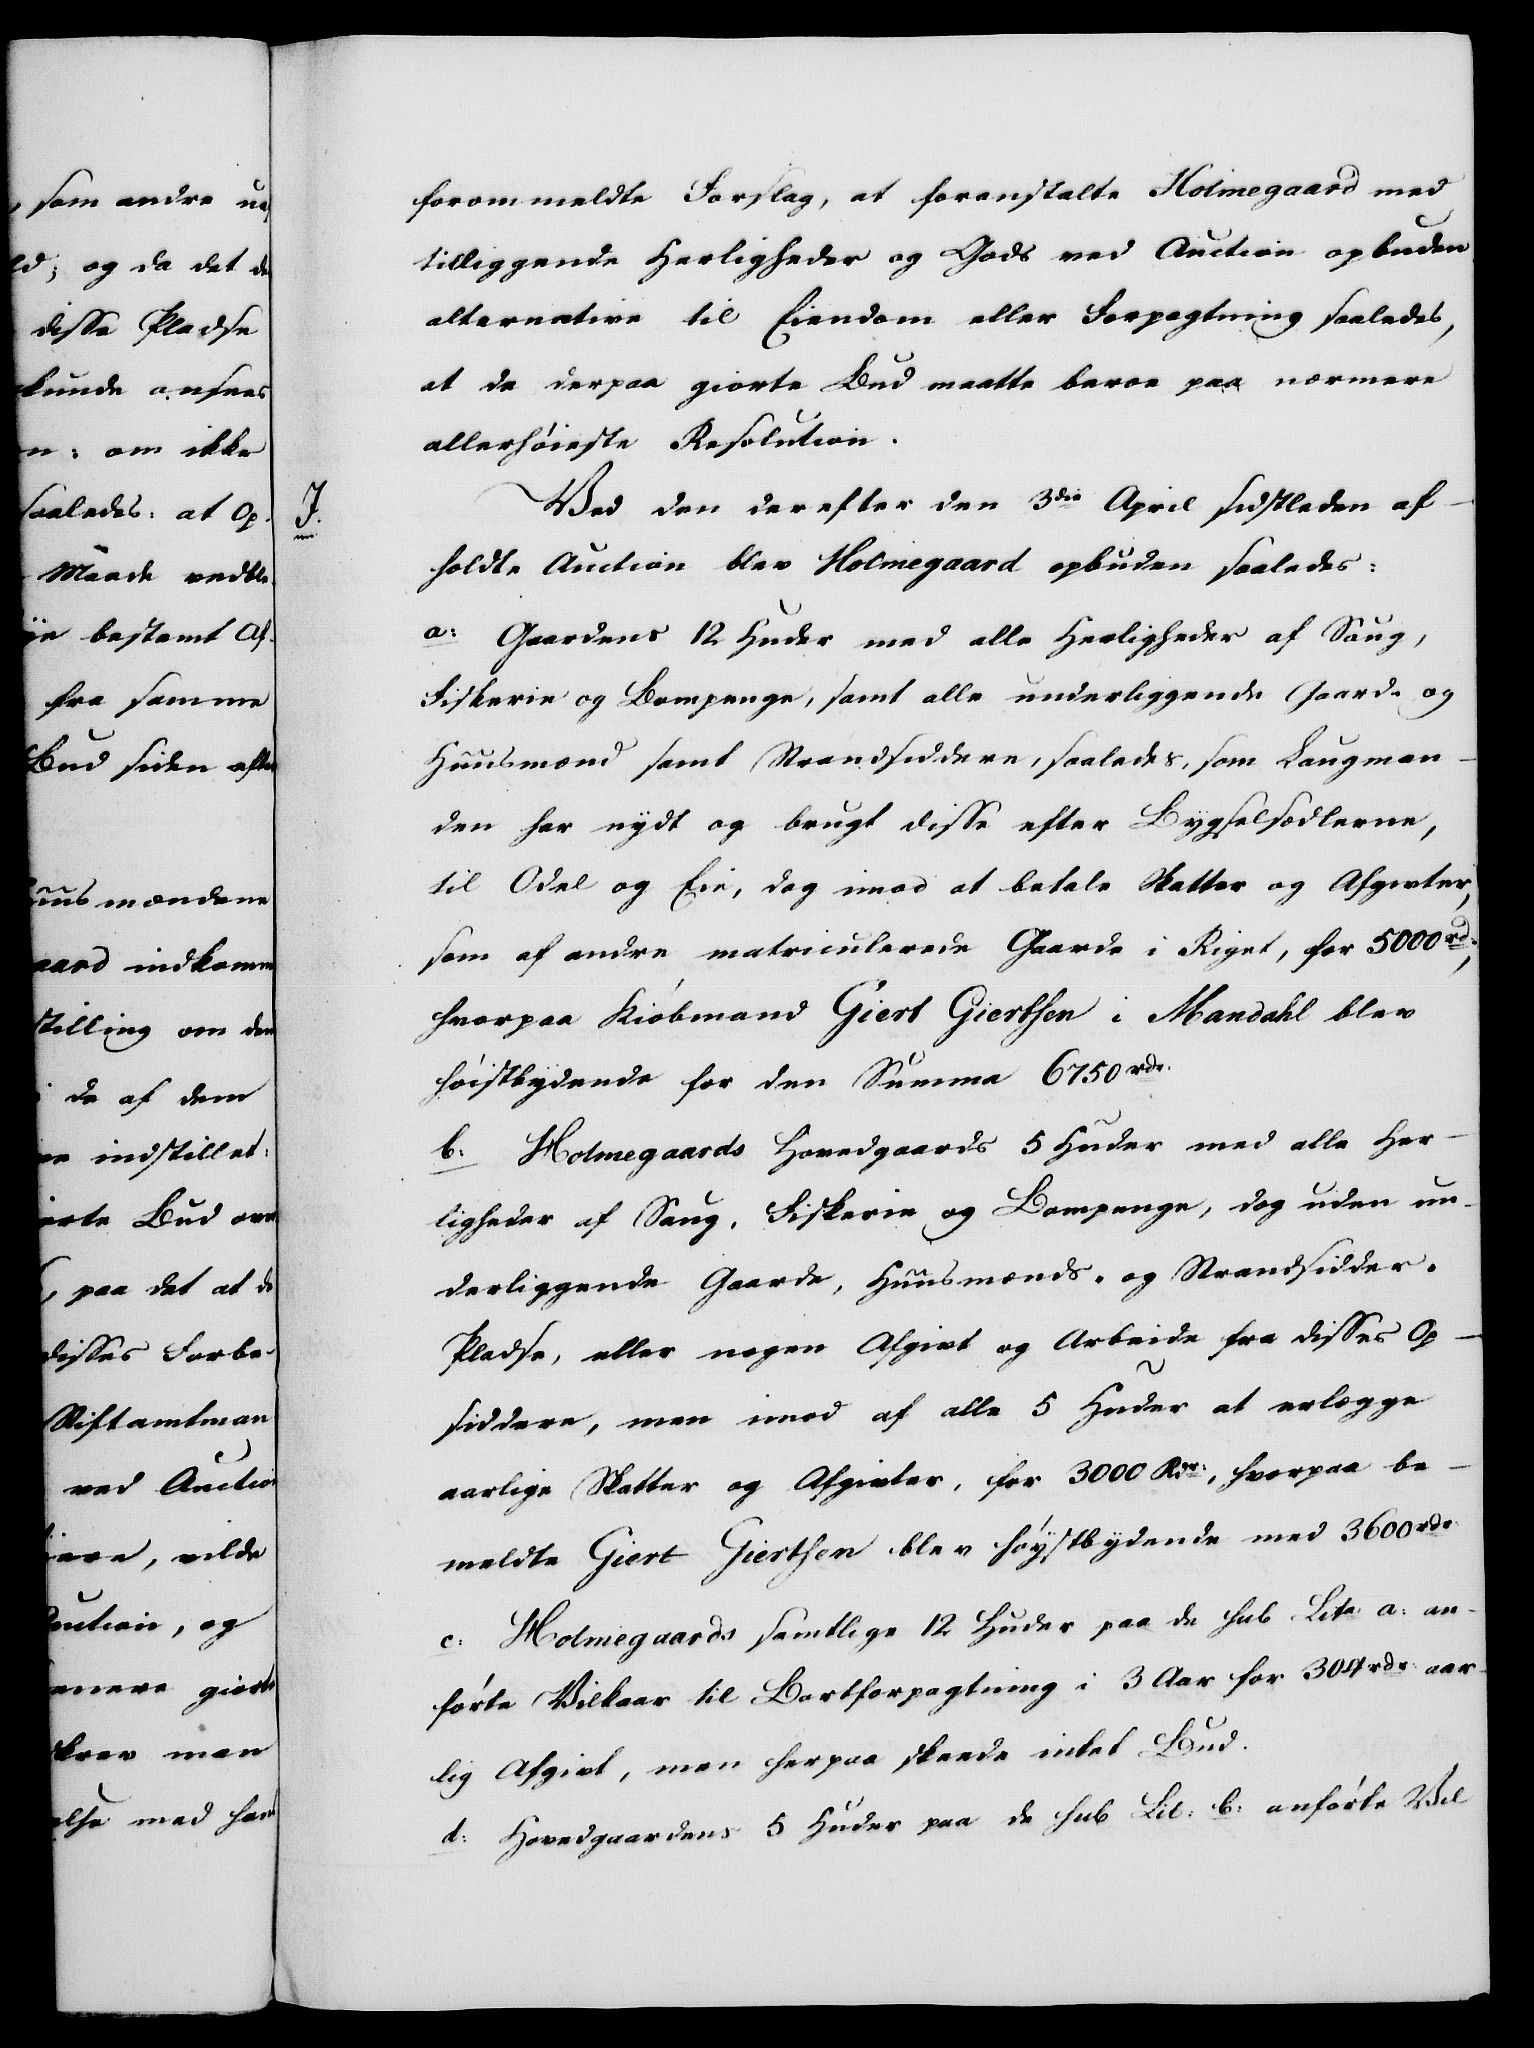 , som andre
ld; og da det de
disse Pladse
kunde ansees
n: om ikke
saaledes: at Op-
Maade vedble
ÿe bestemt Af-
fra samme
Bud siden efter
Huusmændene
aard indkomm
stilling om den
i de af dem
re indstillet:
iorte Bud over
, paa det at de
disses Forbe-
Stiftamtman
ved Auction
ivere, vilde
auction, og
ermere giorte
skrev man
else med hans
forommeldte Forslag, at foranstalte Holmegaard med
tilliggende Herligheder og Gods ved Auction opbuden
alternative til Eiendom eller Forpagtning saaledes,
at de derpaa giorte Bud maatte beroe paa nærmere
allerhöieste Resolution.
J.
Ved den derefter den 3die April sidstleden af-
holdte Auction blev Holmegaard opbuden saaledes:
a: Gaardens 12 Huder med alle Herligheder af Saug,
Fiskerie og Bompenge, samt alle underliggende Gaard- og
Huusmænd samt Strandsiddere, saaledes, som Laugman-
den har nydt og brugt disse efter Bygselsedlerne,
til Odel og Eie, dog imod at betale Skatter og Afgivter,
som af andre matriculerede Gaarde i Riget, for 5000 rd:,
hvorpaa Kiöbmand Giert Gierthsen i Mandahl blev
höistbydende for den Summa 6750 rdr.
b: Holmegaards Hovedgaards 5 Huder med alle Her-
ligheder af Saug, Fiskerie og Bompenge, dog uden un-
derliggende Gaarde, Huusmænds- og Strandsidder-
Pladse, eller nogen Afgivt og Arbeide fra disses Op-
siddere, men imod af alle 5 Huder at erlægge
aarlige Skatter og Afgivter, for 3000 Rdr:, hvorpaa be-
meldte Giert Gierthsen blev höystbydende med 3600 rdr:
c: Holmegaards samtlige 12 Huder paa de sub Lita a: an-
förte Vilkaar til Bortforpagtning i 3 Aar for 304 rdr: aar-
lig Afgivt, men herpaa skeede intet Bud.
d: Hovedgaardens 5 Huder paa de sub Lit: b: anförte Vil